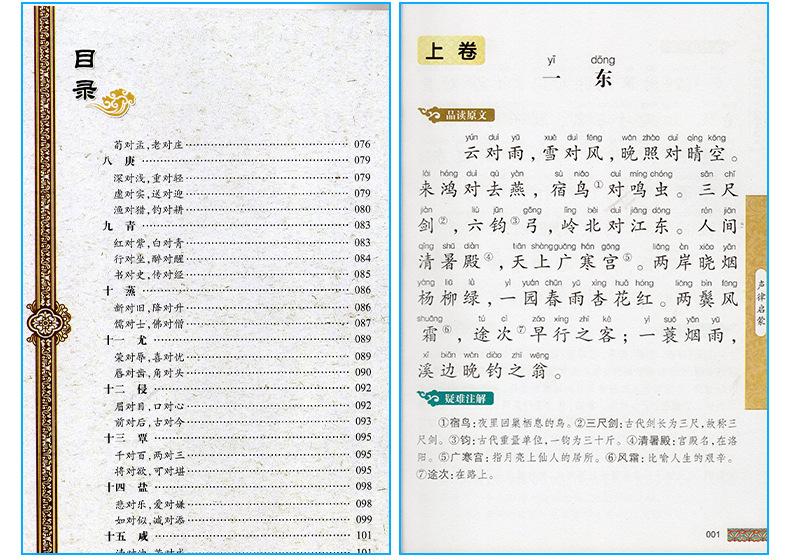 目录
荀对孟,老对庄 076
八 庚 079
深对浅,重对轻 079
虚对实,送对迎 079
渔对猎,钓对耕 080
九 青 083
红对紫,白对青 083
行对坐,醉对醒 084
书对史,传对经 085
十 蒸 086
新对旧,降对升 086
儒对士,佛对僧 087
十一 尤 089
荣对辱,喜对忧 089
唇对齿,角对头 090
十二 侵 092
眉对目,口对心 092
前对后,古对今 093
十三 覃 095
千对百,两对三 095
将对欲,可对堪 095
十四 盐 098
悲对乐,爱对嫌 098
如对似,减对添 099
十五 咸 101
上卷
yī dōng
一 东
品读原文
yún duì yǔ xuě duì fēng wǎn zhào duì qíng kōng
云对雨,雪对风,晚照对晴空。
lái hóng duì qù yàn sù niǎo duì míng chóng sān chǐ
来鸿对去燕,宿鸟①对鸣虫。三尺
jiàn liù jūn gōng lǐng běi duì jiāng dōng rén jiān
剑②,六钧③弓,岭北对江东。人间
qīng shǔ diàn tiān shàng guǎng hán gōng liǎng àn xiǎo yān
清暑殿④,天上广寒宫⑤。两岸晓烟
yáng liǔ lǜ yì yuán chūn yǔ xìng huā hóng liǎng bìn fēng
杨柳绿,一园春雨杏花红。两鬓风
shuāng tú cì zǎo xíng zhī kè yì suō yān yǔ
霜⑥,途次⑦早行之客;一蓑烟雨,
xī biān wǎn diào zhī wēng
溪边晚钓之翁。
疑难注解
①宿鸟:夜里回巢栖息的鸟。②三尺剑:古代剑长为三尺,故称三
尺剑。③钧:古代重量单位,一钧为三十斤。④清暑殿:宫殿名,在洛
阳。⑤广寒宫:指月亮上仙人的居所。⑥风霜:比喻人生的艰辛。
⑦途次:在路上。
声律启蒙
001